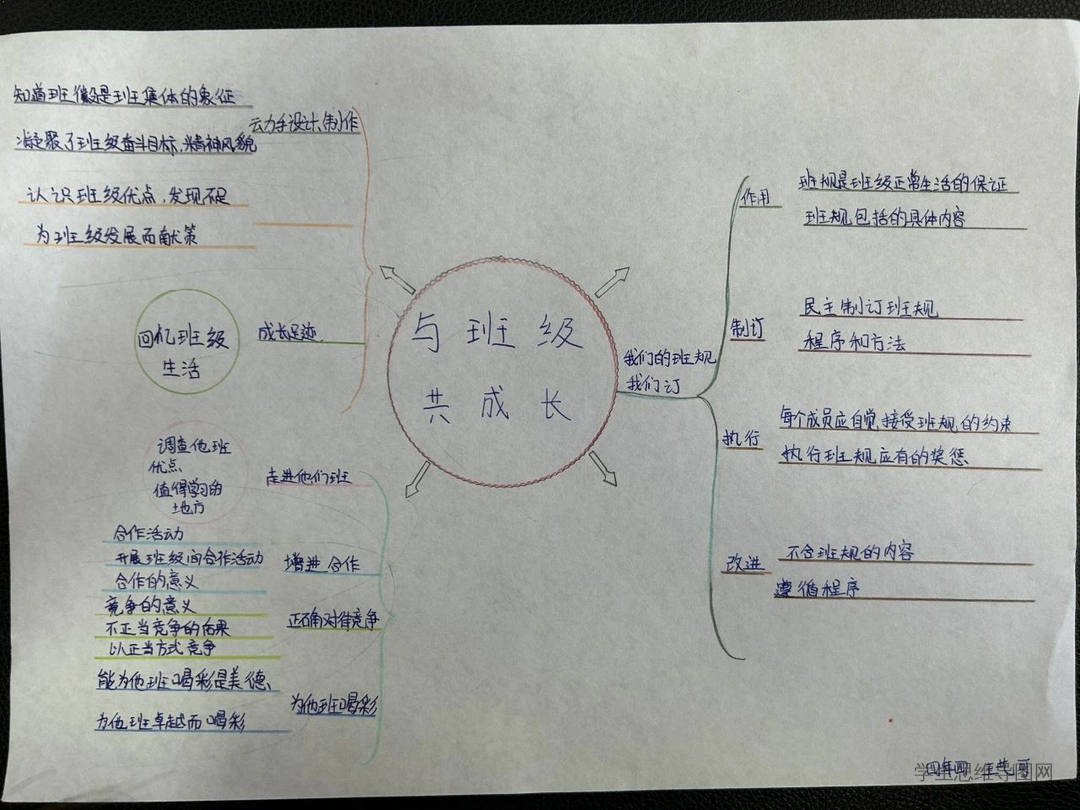 知道班徽是班集体的象征
凝聚了班级奋斗目标,精神风貌
认识班级优点,发现不足
为班级发展而献策
动手设计、制作
回忆班级
生活
成长足迹
与班级
共成长
我们的班规
我们订
作用
班规是班级正常生活的保证
班规包括的具体内容
制订
民主制订班规
程序和方法
执行
每个成员应自觉接受班规的约束
执行班规应有的奖惩
改进
不合班规的内容
遵循程序
调查他班
优点、
值得学习的
地方
走进他们班
合作活动
开展班级间合作活动
合作的意义
增进合作
竞争的意义
不正当竞争的后果
以正当方式竞争
正确对待竞争
能为他班喝彩是美德、
为他班卓越而喝彩
为他班喝彩
四年四
学生思维导图网